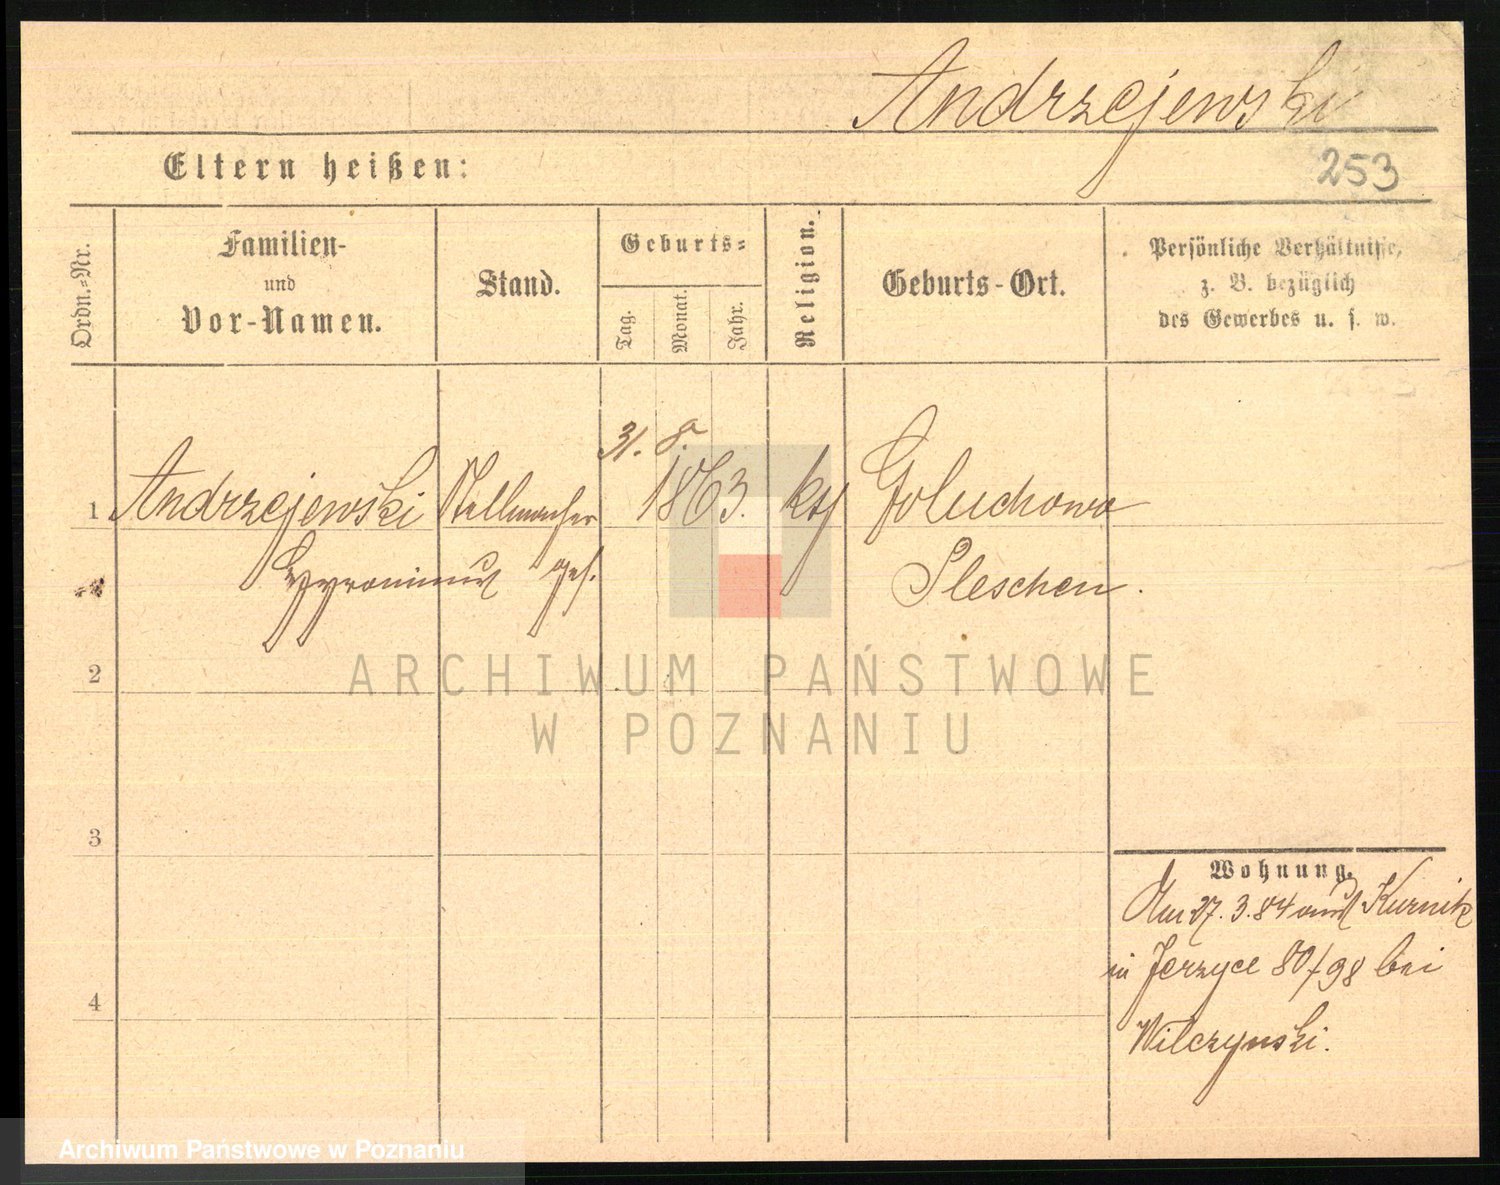 Andrzejewski
Eltern heißen:
253
Ordn.-Nr.
Familien-
und
Vor-Namen.
Stand.
Geburts-
Tag.
Monat.
Jahr.
Religion.
Geburts-Ort.
Persönliche Verhältnisse,
z. B. bezüglich
des Gewerbes u. s. w.
31. 8.
1 Andrzejewski Stellmacher 1863. kth Goluchowo
ges. Pleschen.
2
3
4
Wohnung.
Am 27. 3. 84 aus Kurnik
in Jerzyce 80/98 bei
Wilczynski.
ARCHIWUM PAŃSTWOWE
W POZNANIU
Archiwum Państwowe w Poznaniu